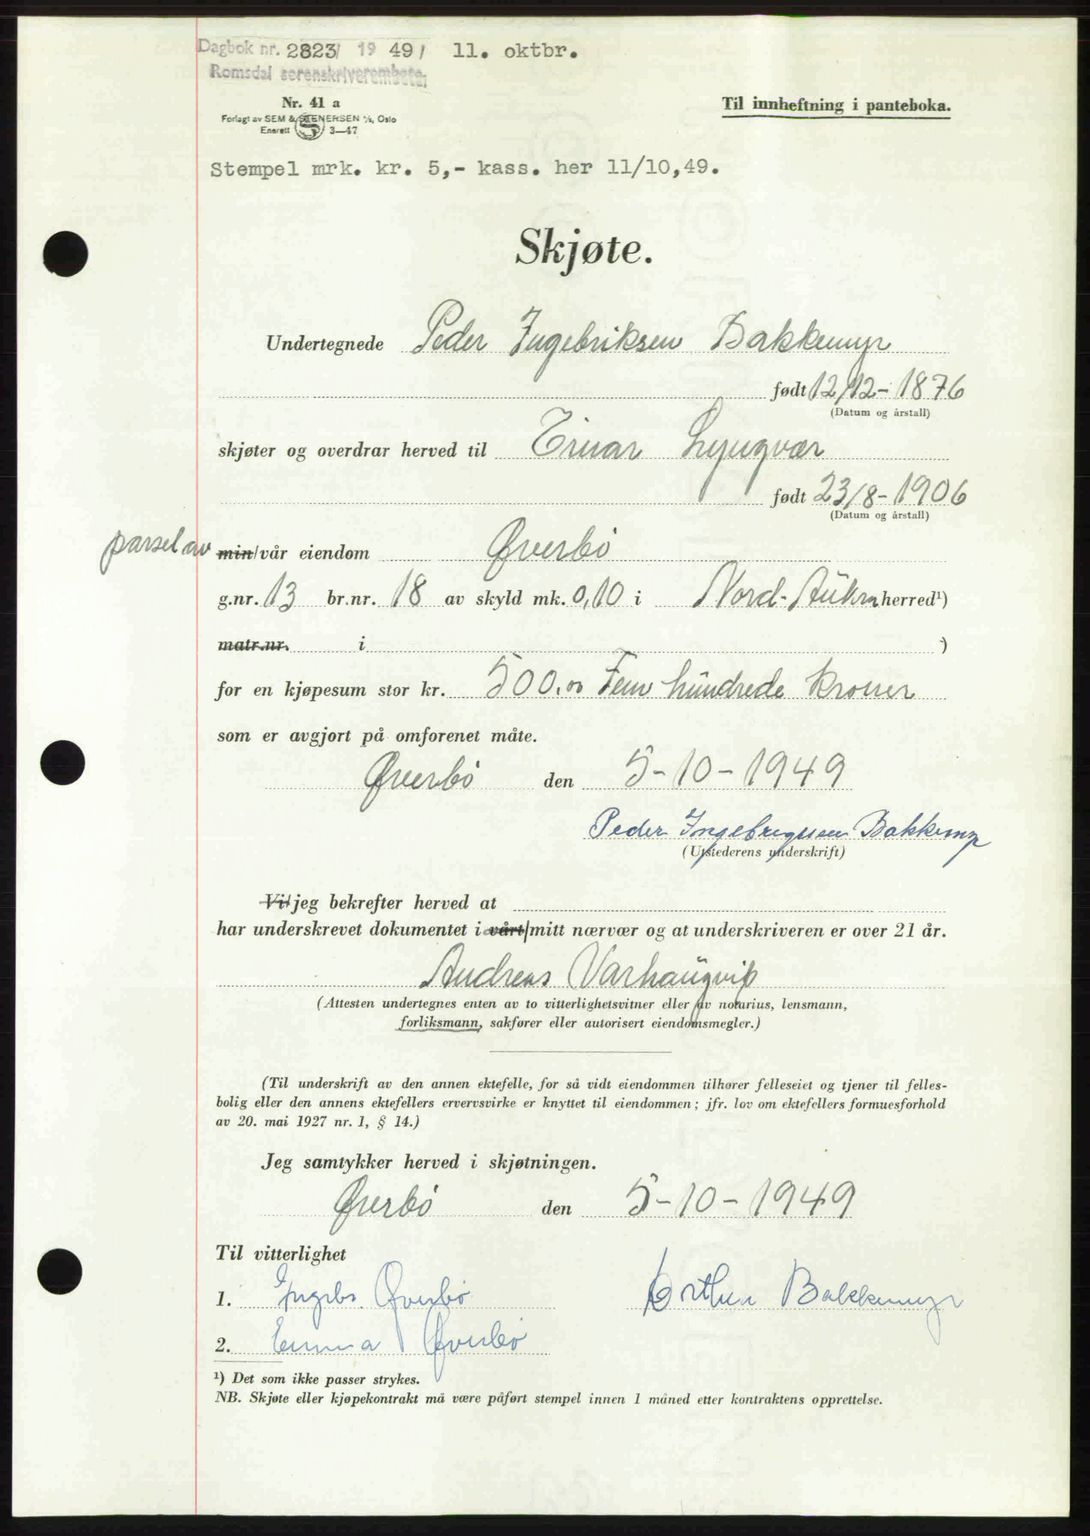 Dagbok nr. 2823/ 19 49/ 11. oktbr.
Romsdal sorenskriverembete,
Nr. 41 a
Til innheftning i panteboka.
Forlagt av SEM & STENERSEN A/S, Oslo
Enerett S 3—47
Stempel mrk. kr. 5,- kass. her 11/10,49.
Skjøte.
Undertegnede Peder Ingebriksen Bakkemyr
født 12/12-1876
(Datum og årstall)
skjøter og overdrar herved til Einar Lyngvær
født 23/8-1906
(Datum og årstall)
parsel av min/vår eiendom Øverbö
g.nr. 13 br.nr. 18 av skyld mk. 0,10 i Nord-Aukra herred¹)
matr.nr. i )
for en kjøpesum stor kr. 500,00 Fem hundrede kroner
som er avgjort på omforenet måte.
Øverbö den 5-10-1949
Peder Ingebrigtsen Bakkemyr
(Utstederens underskrift)
Vi/jeg bekrefter herved at
har underskrevet dokumentet i vårt/mitt nærvær og at underskriveren er over 21 år.
Andreas Varhaugvik
(Attesten undertegnes enten av to vitterlighetsvitner eller av notarius, lensmann,
forliksmann, sakfører eller autorisert eiendomsmegler.)
(Til underskrift av den annen ektefelle, for så vidt eiendommen tilhører felleseiet og tjener til felles-
bolig eller den annens ektefellers ervervsvirke er knyttet til eiendommen; jfr. lov om ektefellers formuesforhold
av 20. mai 1927 nr. 1, § 14.)
Jeg samtykker herved i skjøtningen.
Øverbö den 5-10-1949
Til vitterlighet
1. Øverbö Bakkemyr
2. Emma Øverbö
¹) Det som ikke passer strykes.
NB. Skjøte eller kjøpekontrakt må være påført stempel innen 1 måned etter kontraktens opprettelse.